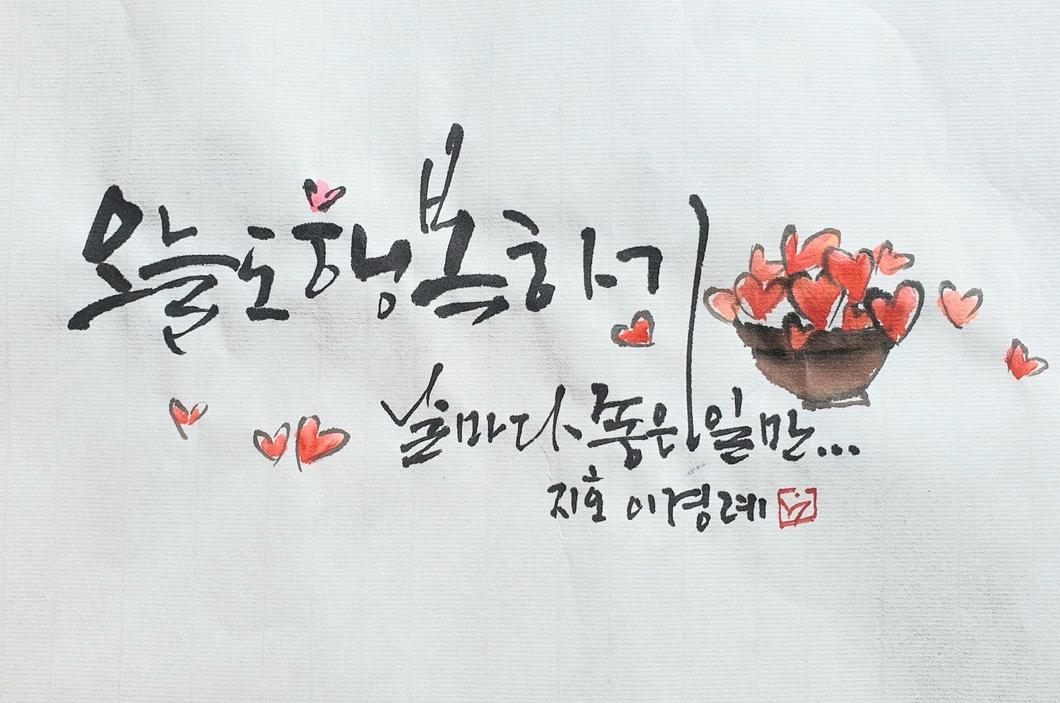 오늘도 행복하기
날마다 좋은 일만...
지호 이경례